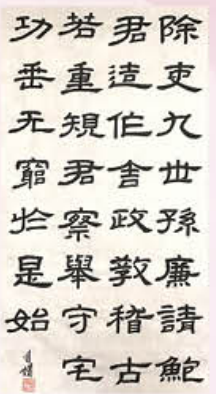 除吏九世孫廉請鮑
君造作舍政教稽古
若重規君察舉守宅
功垂无窮於是始